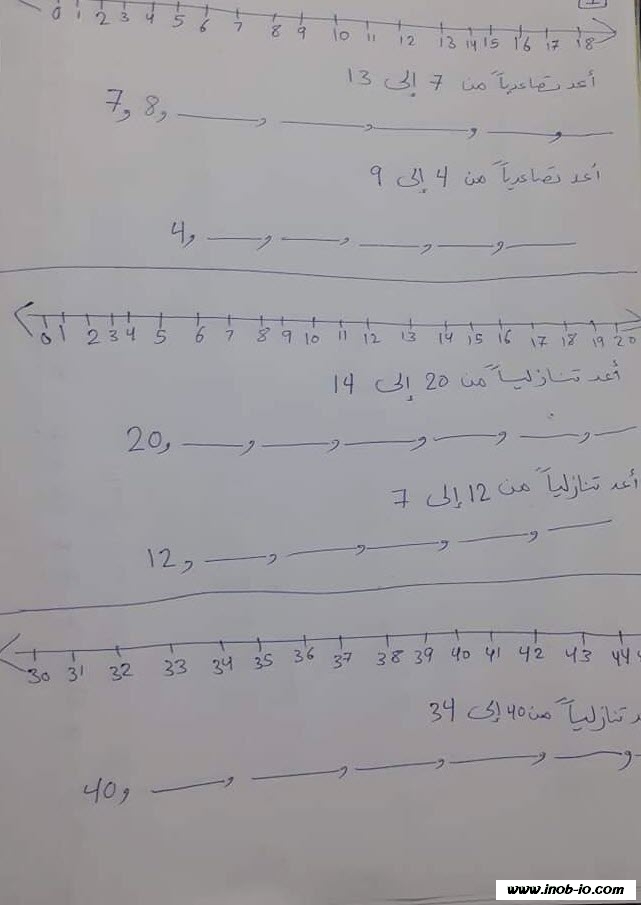 0 1 2 3 4 5 6 7 8 9 10 11 12 13 14 15 16 17 18
أعد تصاعدياً من 7 إلى 13
7, 8, ___, ___, ___, ___, ___
أعد تصاعدياً من 4 إلى 9
4, ___, ___, ___, ___, ___
0 1 2 3 4 5 6 7 8 9 10 11 12 13 14 15 16 17 18 19 20
أعد تنازلياً من 20 إلى 14
20, ___, ___, ___, ___, ___, ___
أعد تنازلياً من 12 إلى 7
12, ___, ___, ___, ___, ___
30 31 32 33 34 35 36 37 38 39 40 41 42 43 44
عد تنازلياً من 40 إلى 34
40, ___, ___, ___, ___, ___,
www.inob-io.com